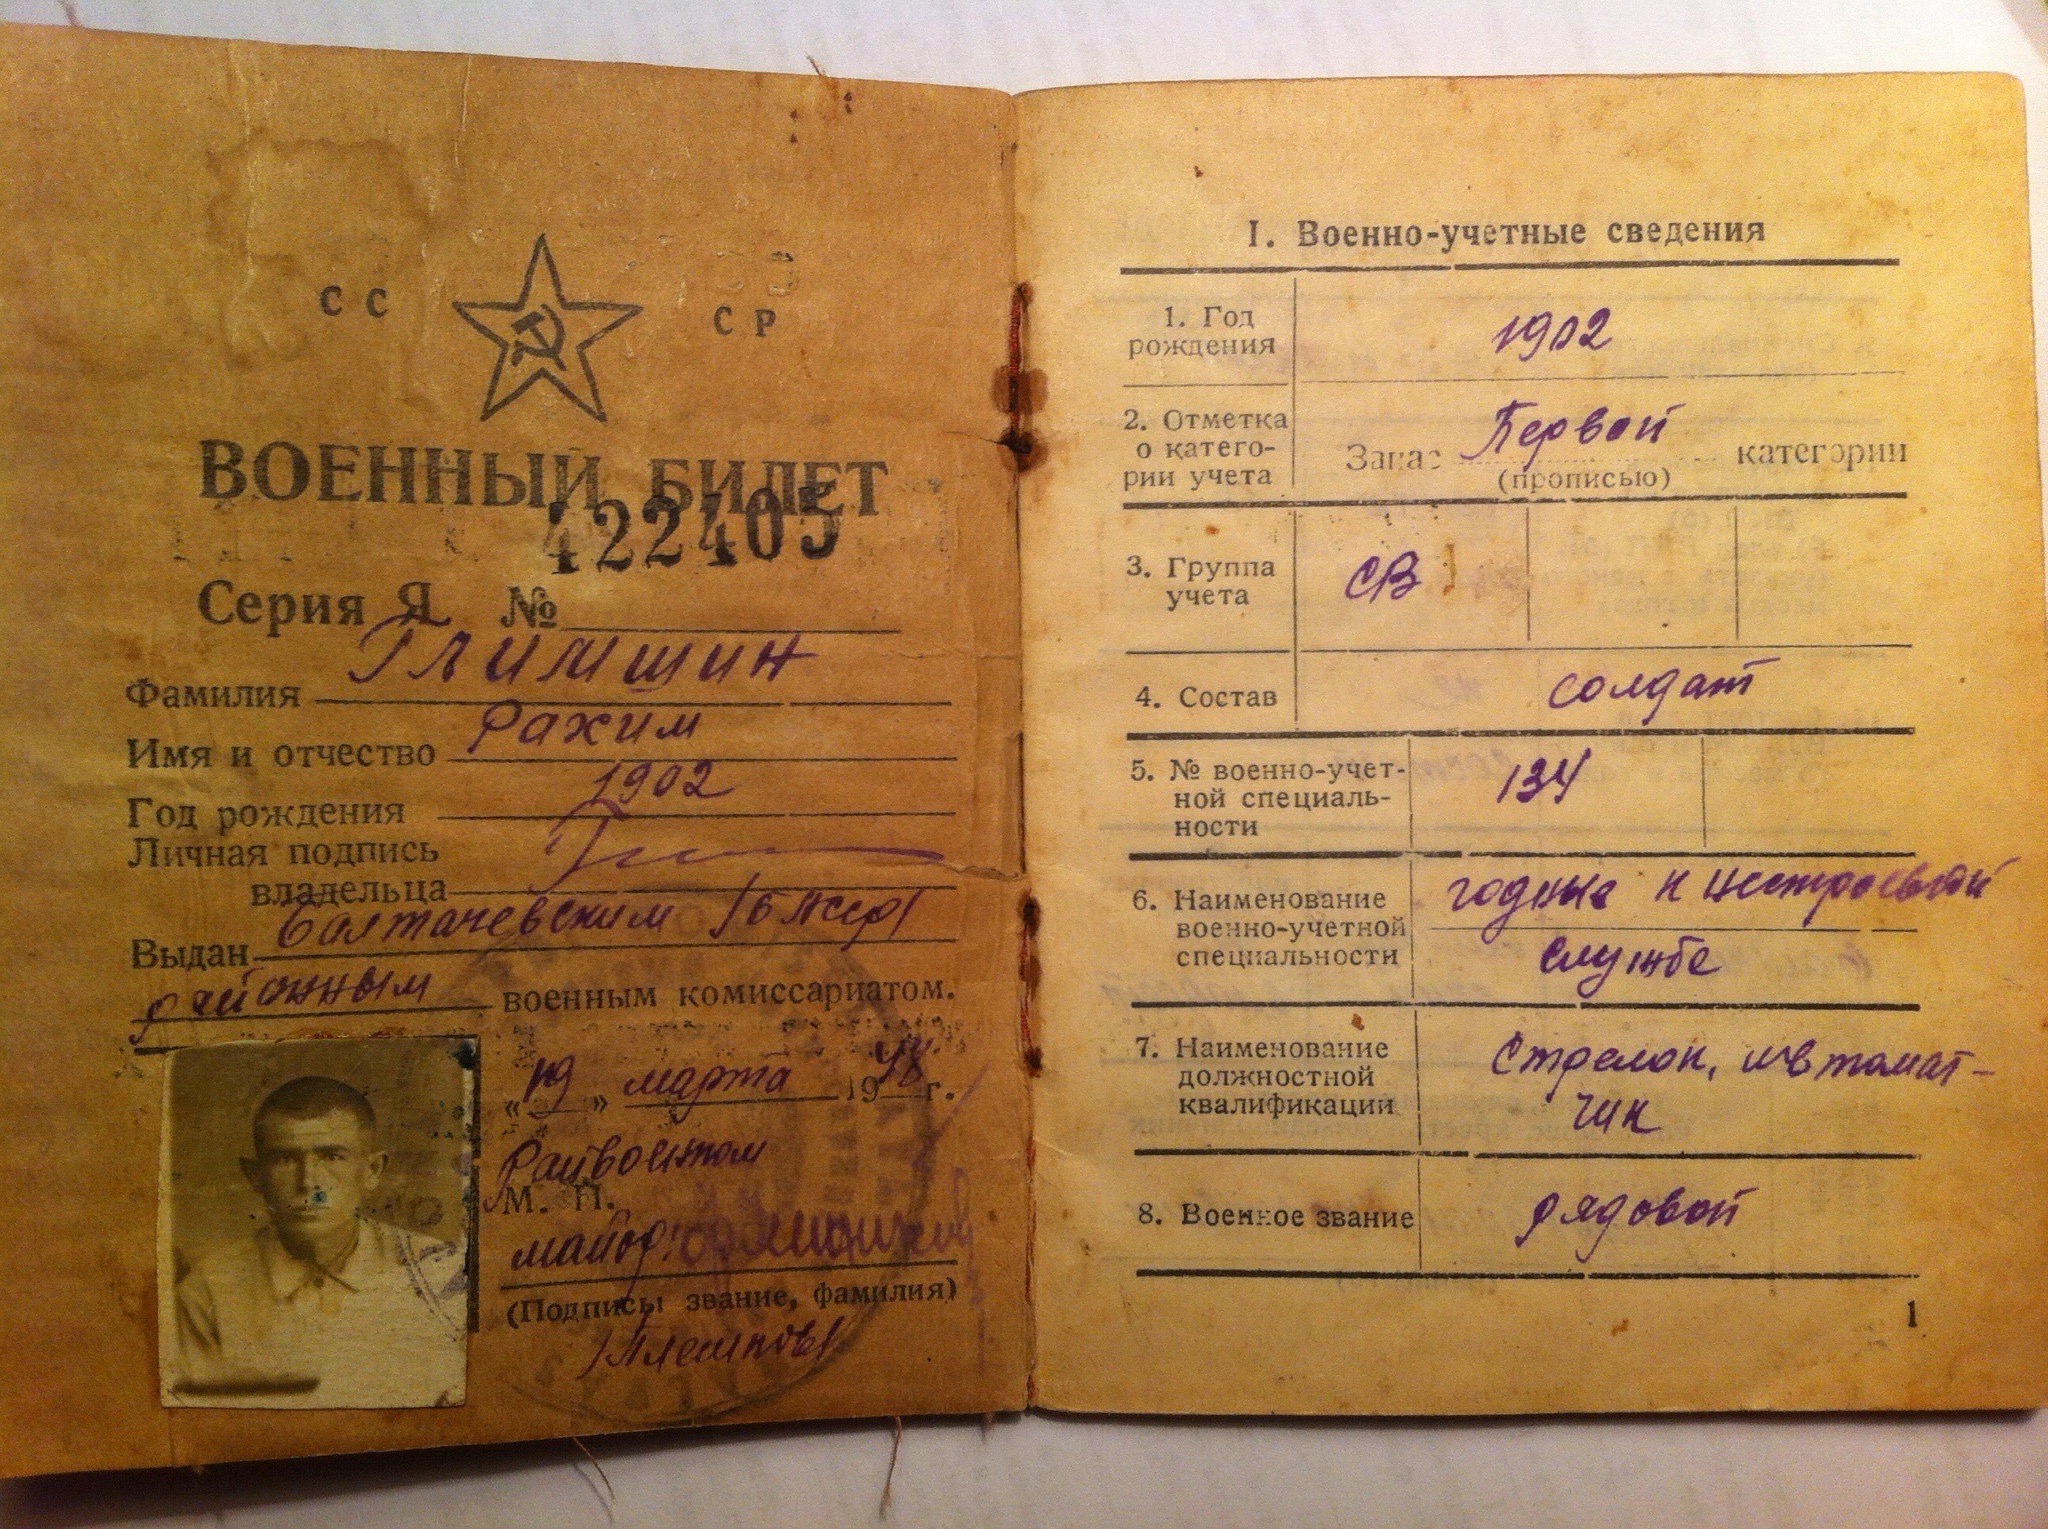 СС СР
ВОЕННЫЙ БИЛЕТ
422405
Серия Я №
Фамилия Глимшин
Имя и отчество Рахим
Год рождения 1902
Личная подпись
владельца
Выдан Балтачевским /БАССР/
районным военным комиссариатом.
«19» марта 1948 г.
Райвоенком
М. П.
майор
(Подпись, звание, фамилия)
I. Военно-учетные сведения
1. Год
рождения
1902
2. Отметка
о катего-
рии учета
Запас Первой категории
(прописью)
3. Группа
учета
СВ
4. Состав
солдат
5. № военно-учет-
ной специаль-
ности
134
6. Наименование
военно-учетной
специальности
годные к нестроевой
службе
7. Наименование
должностной
квалификации
Стрелок, автомат-
чик
8. Военное звание
рядовой
1